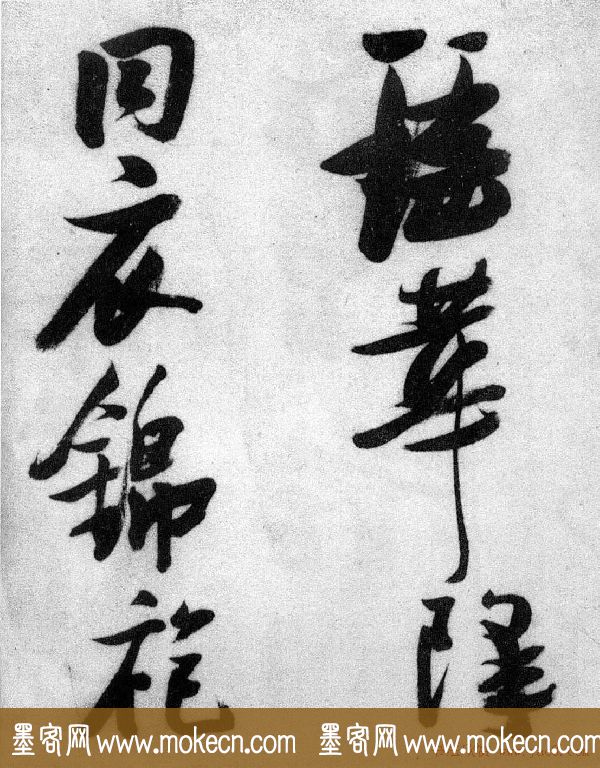 華隆
同衣錦袍
墨客网 www.mokecn.com 墨客网 www.mokecn.com